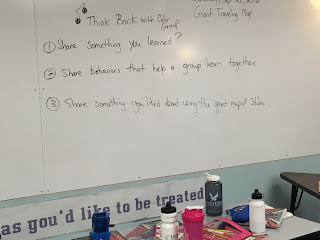 Grant Traveling Map
Think Back with Color Group
① Share something you learned?
② Share behaviors that help a group learn together.
③ Share something you liked about using the giant map of
as you'd like to be treated